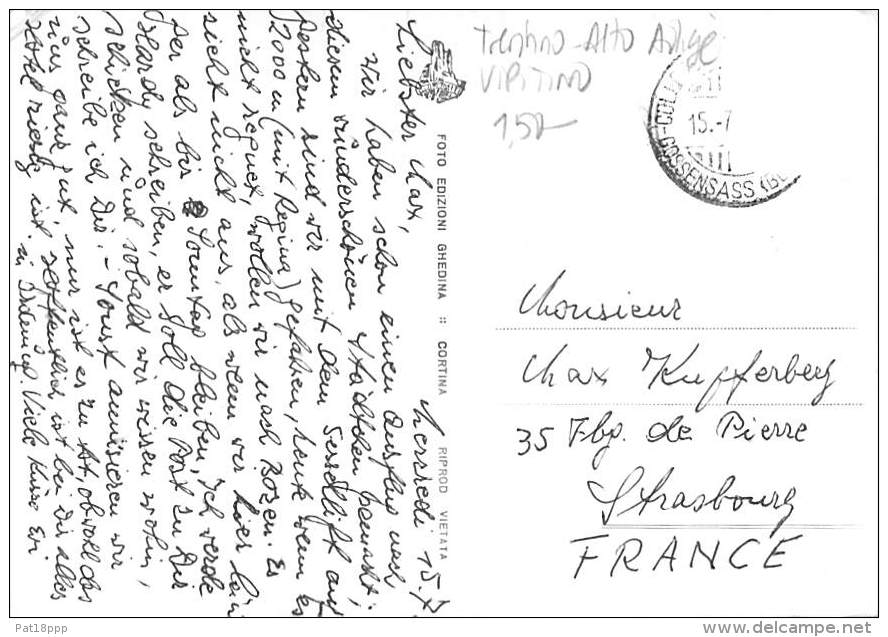 Mercredi 15.7.
Liebster Max,
Wir haben schon einen Ausflug nach
diesem wunderschönen Städtchen gemacht;
gestern sind wir mit dem Sessellift auf
2000 m (mit Regina) gefahren, heute wenn es
nicht regnet, wollen wir nach Bozen. Es
sieht nicht aus, als wenn wir hier län
ger als bis Sonntag bleiben, ich werde
schreiben, er soll die Post zu Dir
schicken und sobald wir wissen wohin,
schreibe ich Dir. - Sonst amüsieren wir
uns ganz gut, nur ist es zu fett, obwohl das
Hotel riesig ist. Hoffentlich ist bei Dir alles
in Ordnung. Viele Küsse Evi
FOTO EDIZIONI GHEDINA :: CORTINA RIPROD VIETATA
Trentino-Alto Adige
VIPITENO
1,50
15.-7
CO-GOSSENSASS (BO
Monsieur
Max Kupferberg
35 Fbg. de Pierre
Strasbourg
FRANCE
Pat18ppp
delcampe.net